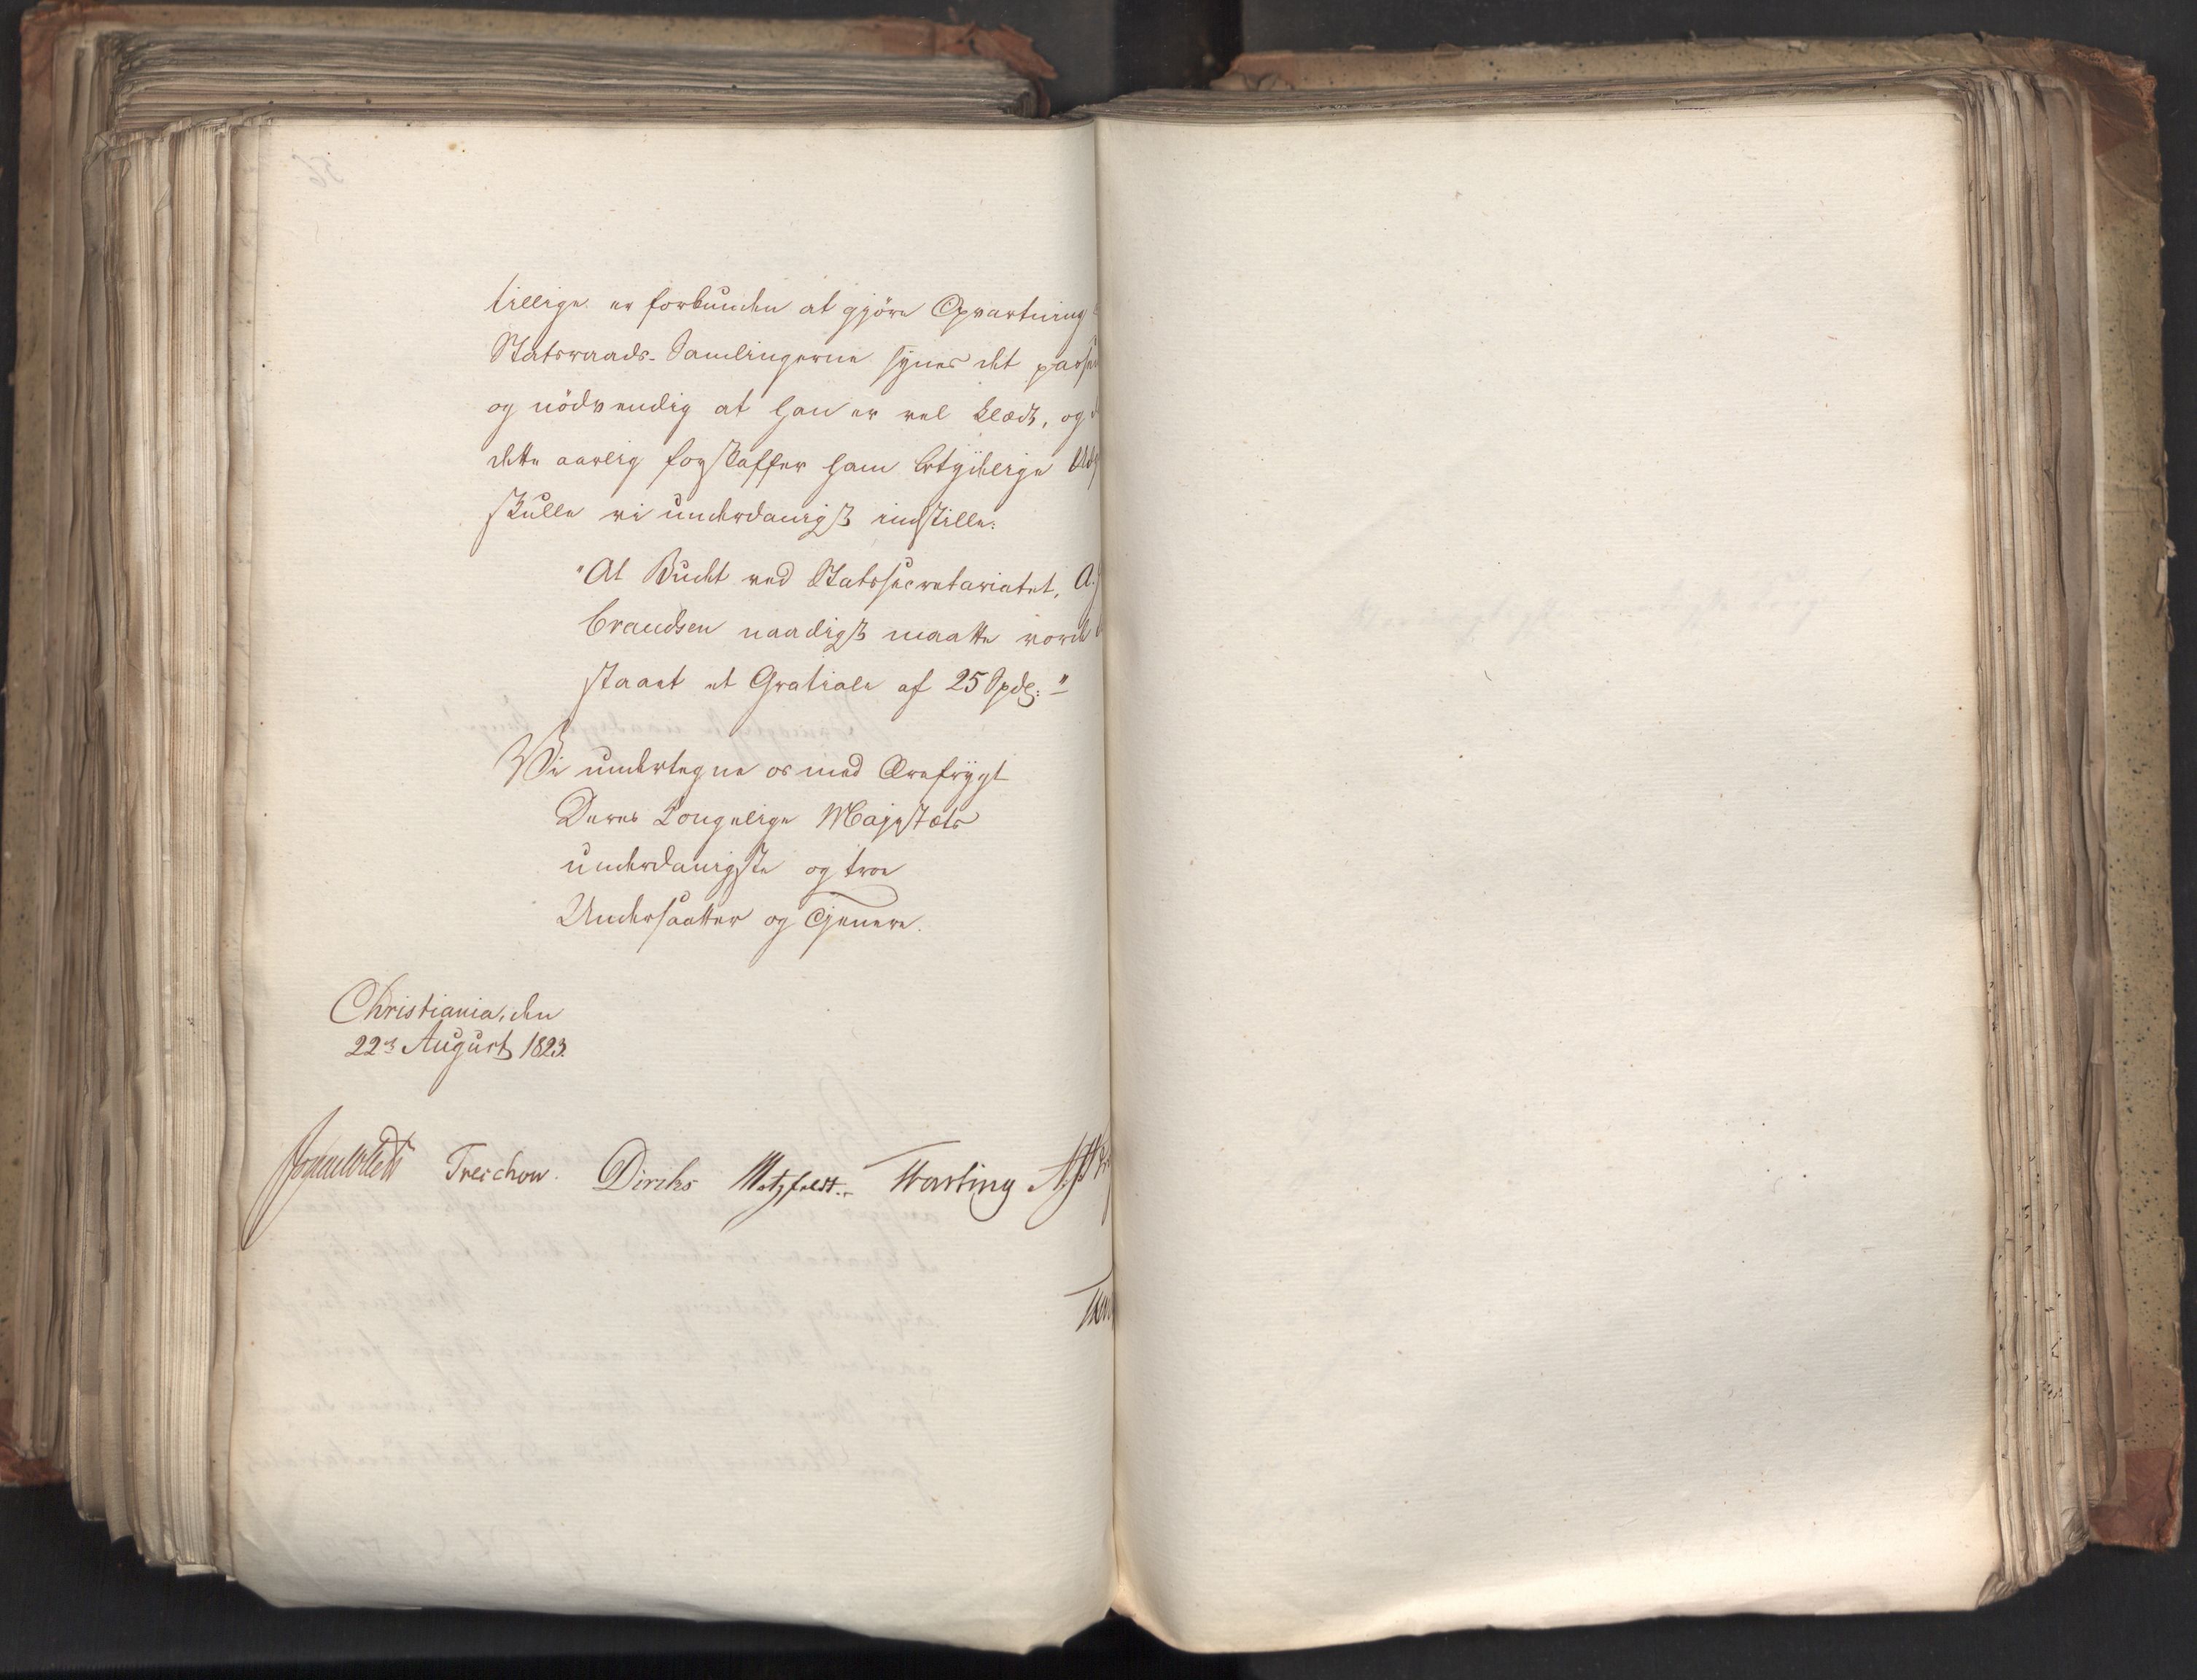 tillige er forbunden at gjöre Opvartning
Statsraads-Samlingerne synes det passen
og nödvendig at han er vel klædt, og d
dette aarlig forskaffer ham betydelige Udg
skulle vi underdanigst indstille:
"At Budet ved Statssecretariatet, A.
Brandsen naadigst maatte vorde
staaet et Gratiale af 25 Spd:"
Vi undertegne os med Ærefrygt
Deres Kongelige Majestæts
underdanigste og troe
Undersaatter og Tjenere.
Christiania, den
22d August 1823.
Sommerhielm Treschow. Diriks Motzfeldt. Fasting